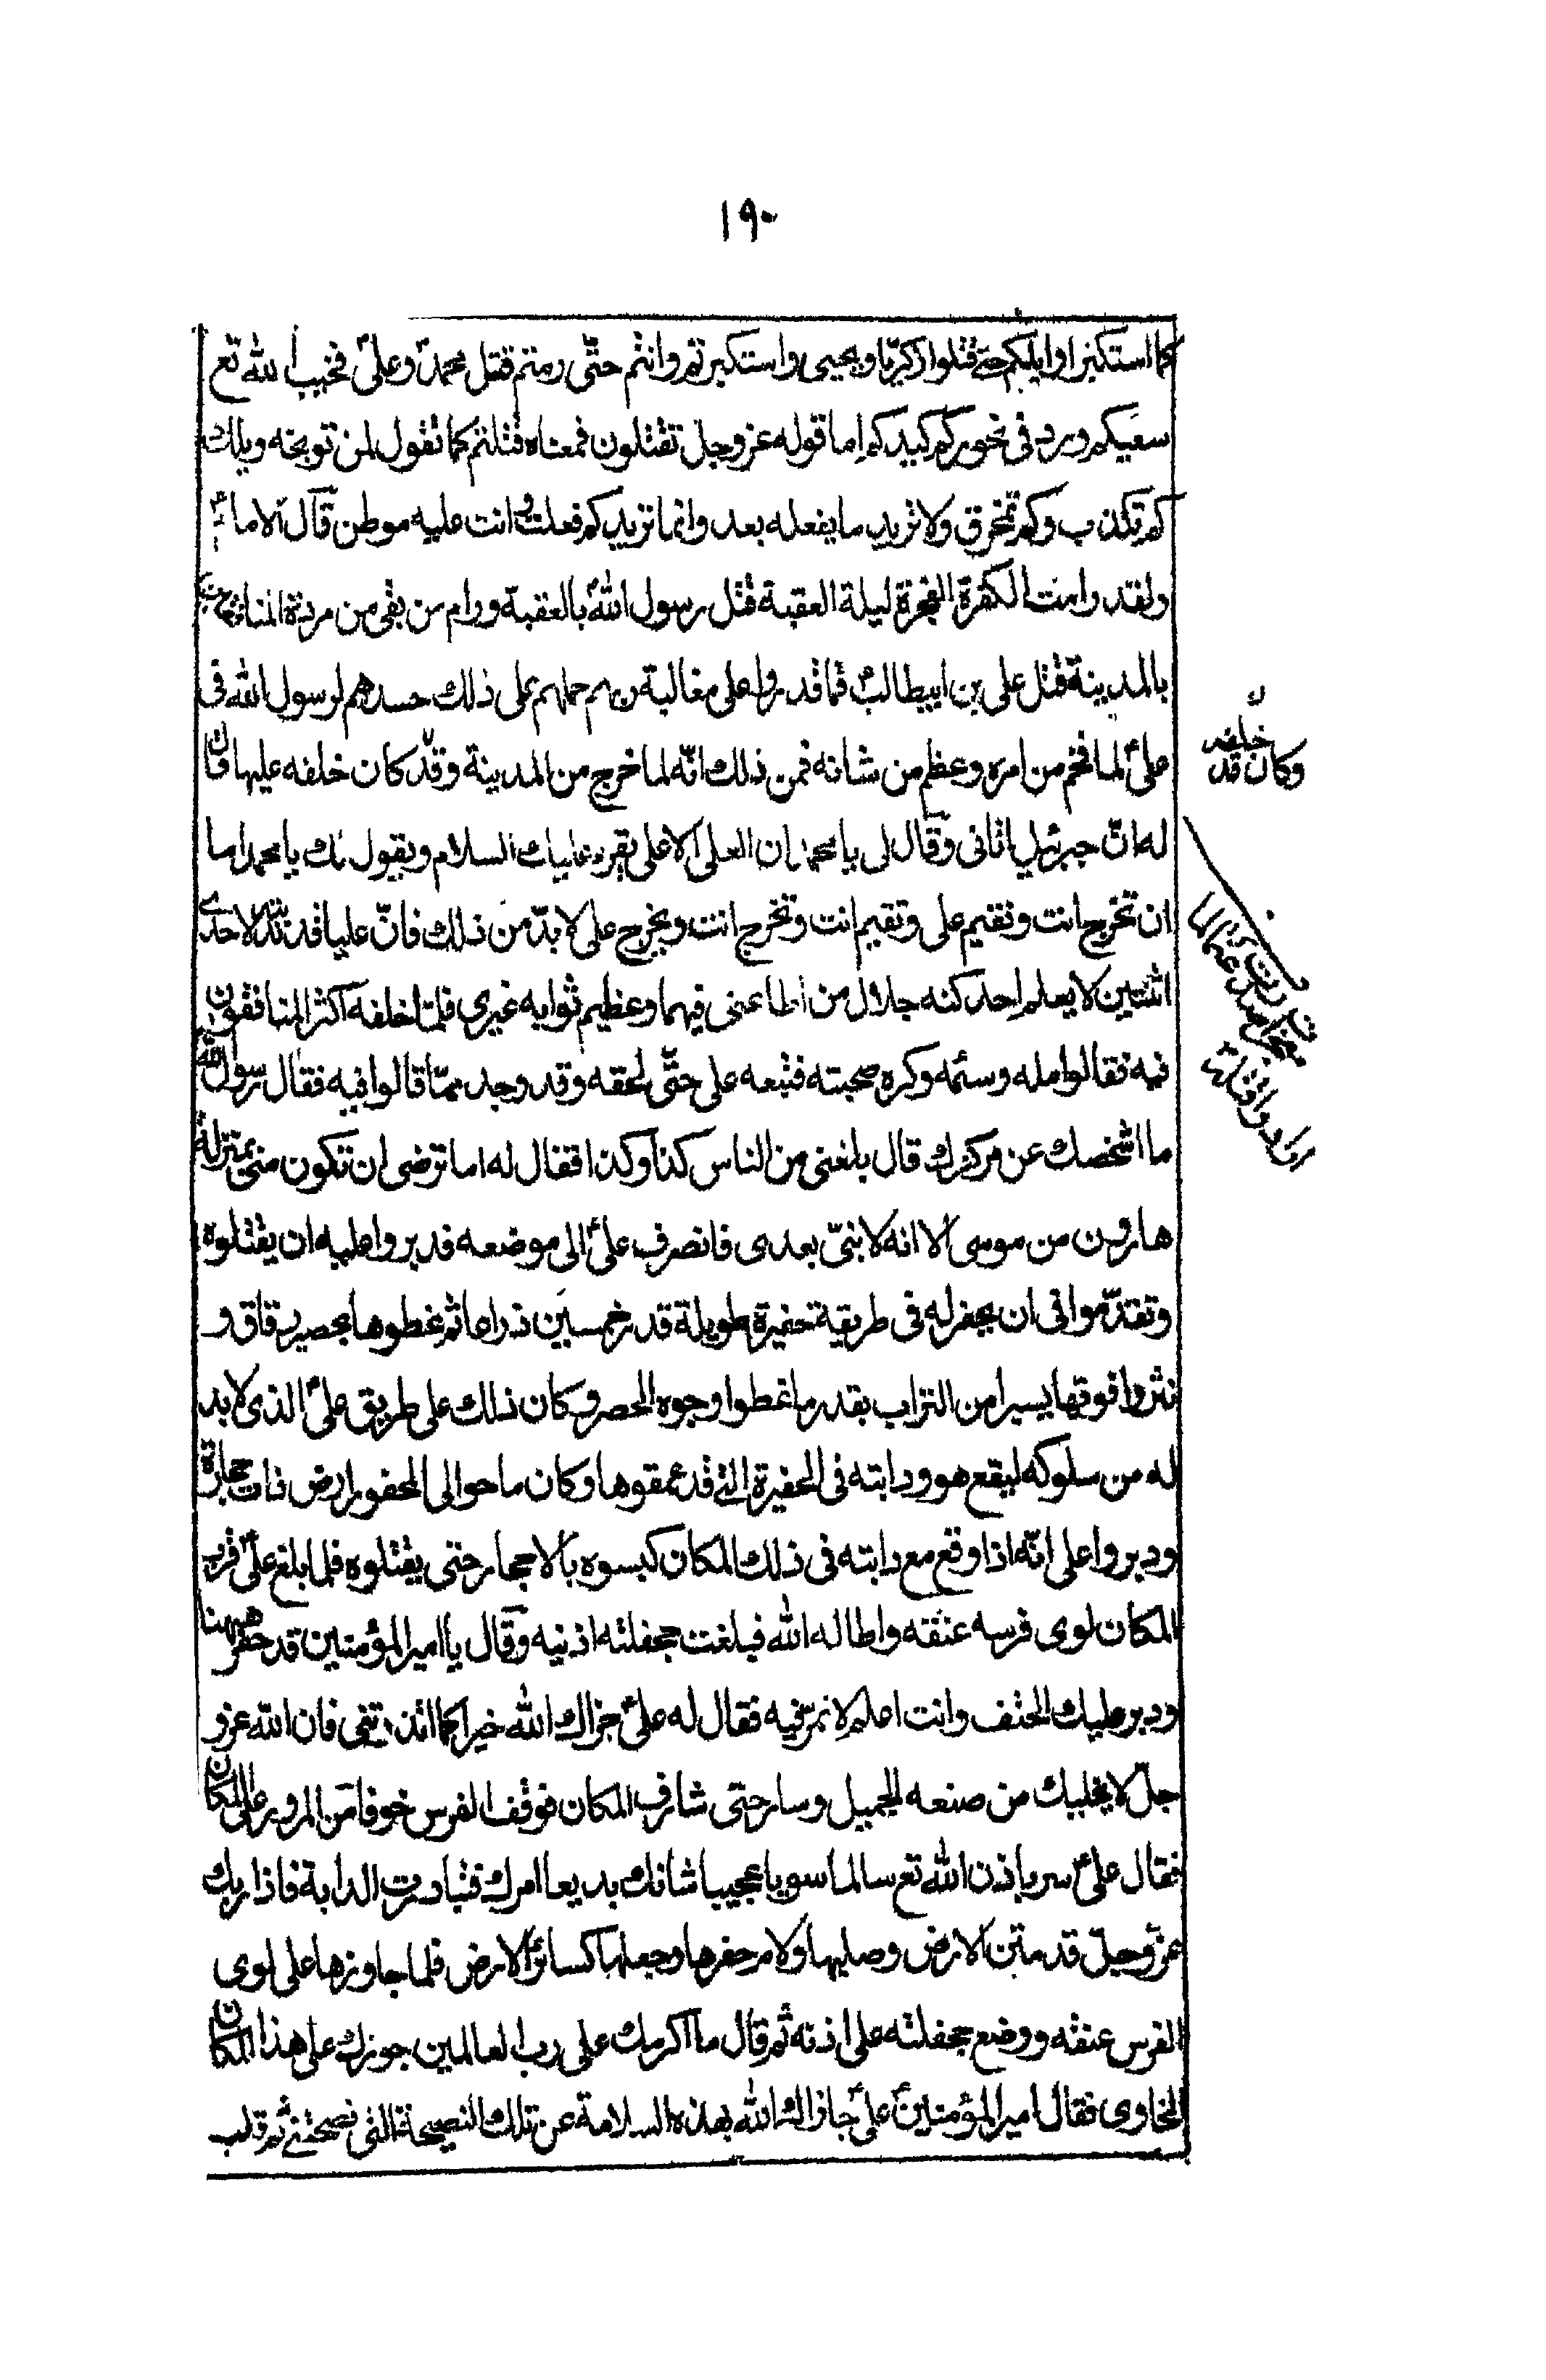 ١٩٠
كما استكبر اوايلكم حتى قتلوا زكريا ويحيى واستكبرتم وانتم حتّى رمتم قتل محمد وعلى فخيب الله تع
سعيكم ورد فى نحوركم كيدكم اما قوله عزوجل تقتلون فمعناه قتلتم كما تقول لمن توبخه ويلك
كم تكذب وكم تمخرق ولا تريد ما يفعله بعد وانما تريد كم فعلت وانت عليه موطن قال الامام
ولقد رامت الكفرة الفجرة ليلة العقبة قتل رسول الله بالعقبة ورام من بقى من مردة المنافقين
بالمدينة قتل على بن ابيطالب فما قدروا على مغالبة ربهم حملهم على ذلك حسدهم لرسول الله فى
على لما فخم من امره وعظم من شانه فمن ذلك انّه لما خرج من المدينة وقد كان خلفه عليها وقال
له انّ جبرئيل اتانى وقال لى يا محمد ان العلى الاعلى يقرء عليك السلام ويقول لك يا محمد اما
ان تخرج انت وتقيم على وتقيم انت وتخرج انت ويخرج على لا بدّ من ذلك فانّ عليا قد ندبته لاحدى
اثنتين لا يعلم احد كنه جلال من اطاعنى فيهما وعظيم ثوابه غيرى فلمّا خلفه اكثر المنافقون
فيه فقالوا مله وسئمه وكره صحبته فتبعه على حتّى لحقه وقد وجد ممّا قالوا فيه فقال رسول الله
ما اشخصك عن مركزك قال بلغنى من الناس كذا وكذا فقال له اما ترضى ان تكون منى بمنزلة
هارون من موسى الا انه لا نبىّ بعدى فانصرف على الى موضعه فدبروا عليه ان يقتلوه
وتقدّموا فى ان يحفر له فى طريقه حفيرة طويلة قدر خمسين ذراعا ثم غطوها بحصير رقاق و
نثروا فوقها يسيرا من التراب بقدر ما غطوا وجوه الحصر وكان ذلك على طريق على الذى لا بد
له من سلوكه ليقع هو ودابته فى الحفيرة التى قد عمقوها وكان ما حوالى المحفور ارض ذات حجارة
ودبروا على انّه اذا وقع مع دابته فى ذلك المكان كبسوه بالاحجار حتى يقتلوه فلما بلغ على قرب
المكان لوى فرسه عنقه واطاله الله فبلغت جحفلته اذنيه وقال يا امير المؤمنين قد حفر ههنا
ودبر عليك الحتف وانت اعلم لا تمرّ فيه فقال له على جزاك الله خيرا كما انذرتنى فان الله عز و
جلّ لا يخليك من صنعه الجميل وسار حتى شارف المكان فوقف الفرس خوفا من المرور على المكان
فقال على سر باذن الله تع سالما سويا عجيبا شانك بديعا امرك فتبادرت الدابة فاذا ربك
عزّوجلّ قد متن الارض وصلبها ولام حفرها وجعلها كسائر الارض فلما جاوزها على لوى
الفرس عنقه ووضع جحفلته على اذنه ثم قال ما اكرمك على رب العالمين جوزك على هذا المكان
الخاوى فقال امير المؤمنين على جازاك الله بهذه السلامة عن تلك النصيحة التى نصحتنى ثم قلب
خلفه
وكان قد